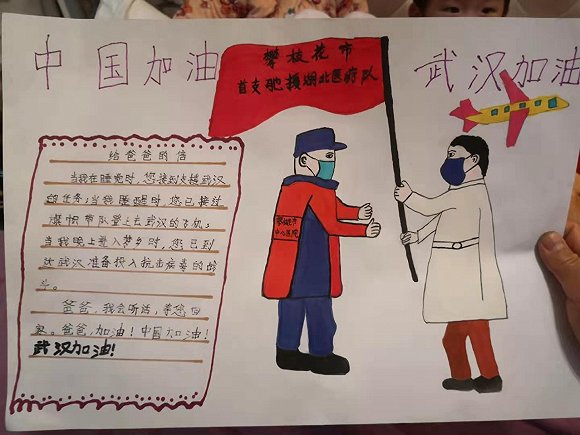 中国加油
武汉加油
攀枝花市
首支驰援湖北医疗队
给爸爸的信
当我在睡觉时,您接到支援武汉
的任务;当我睡醒时,您已接过
旗帜带队登上去武汉的飞机;
当我晚上进入梦乡时,您已到
达武汉准备投入抗击病毒的战
斗。
爸爸,我会听话,等您回
家。爸爸,加油!中国加油!
武汉加油!
攀枝花市
中心医院